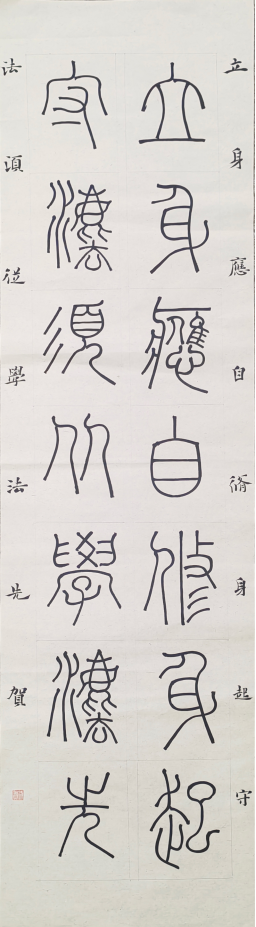 立身應自脩身起守
立身應自修身起
守灋須从學灋先
法湏從學法先賀